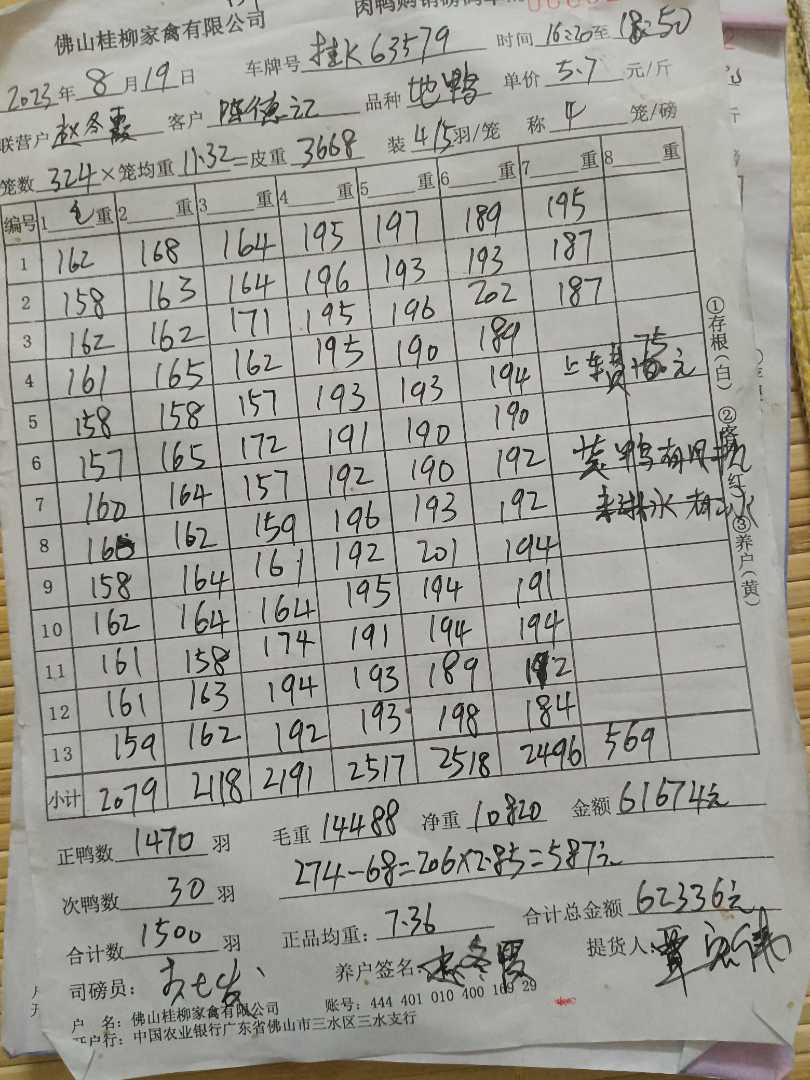 佛山桂柳家禽有限公司
2023年8月19日 车牌号 桂K63579 时间 16:20至18:50
联营户 赵冬霞 客户 陈德记 品种 地鸭 单价 5.7 元/斤
笼数 324×笼均重 11.32=皮重 3668 装 4/5 羽/笼 称 4 笼/磅
编号 1 毛重 2 重 3 重 4 重 5 重 6 重 7 重 8 重
1 162 168 164 195 197 189 195
2 158 163 164 196 193 193 187
3 162 162 171 195 196 202 187
4 161 165 162 195 190 189
5 158 158 157 193 193 194 上车费 75 元
6 157 165 172 191 190 190
7 160 164 157 192 190 192
8 162 159 196 193 192
9 158 164 161 192 201 194
10 162 164 164 195 194 191
11 161 158 174 191 194 194
12 161 163 194 193 189 192
13 159 162 192 193 198 184
小计 2079 2118 2191 2517 2518 2496 569
正鸭数 1470 羽 毛重 14488 净重 10820 金额 61674元
次鸭数 30 羽 274-68=206×2.85=587元
合计数 1500 羽 正品均重: 7.36 合计总金额 62336元
司磅员: 养户签名: 赵冬霞 提货人:
户 名: 佛山桂柳家禽有限公司 账号: 444 401 010 400 169 29
开户行: 中国农业银行广东省佛山市三水区三水支行
①存根(白) ②客 红) ③养户(黄)